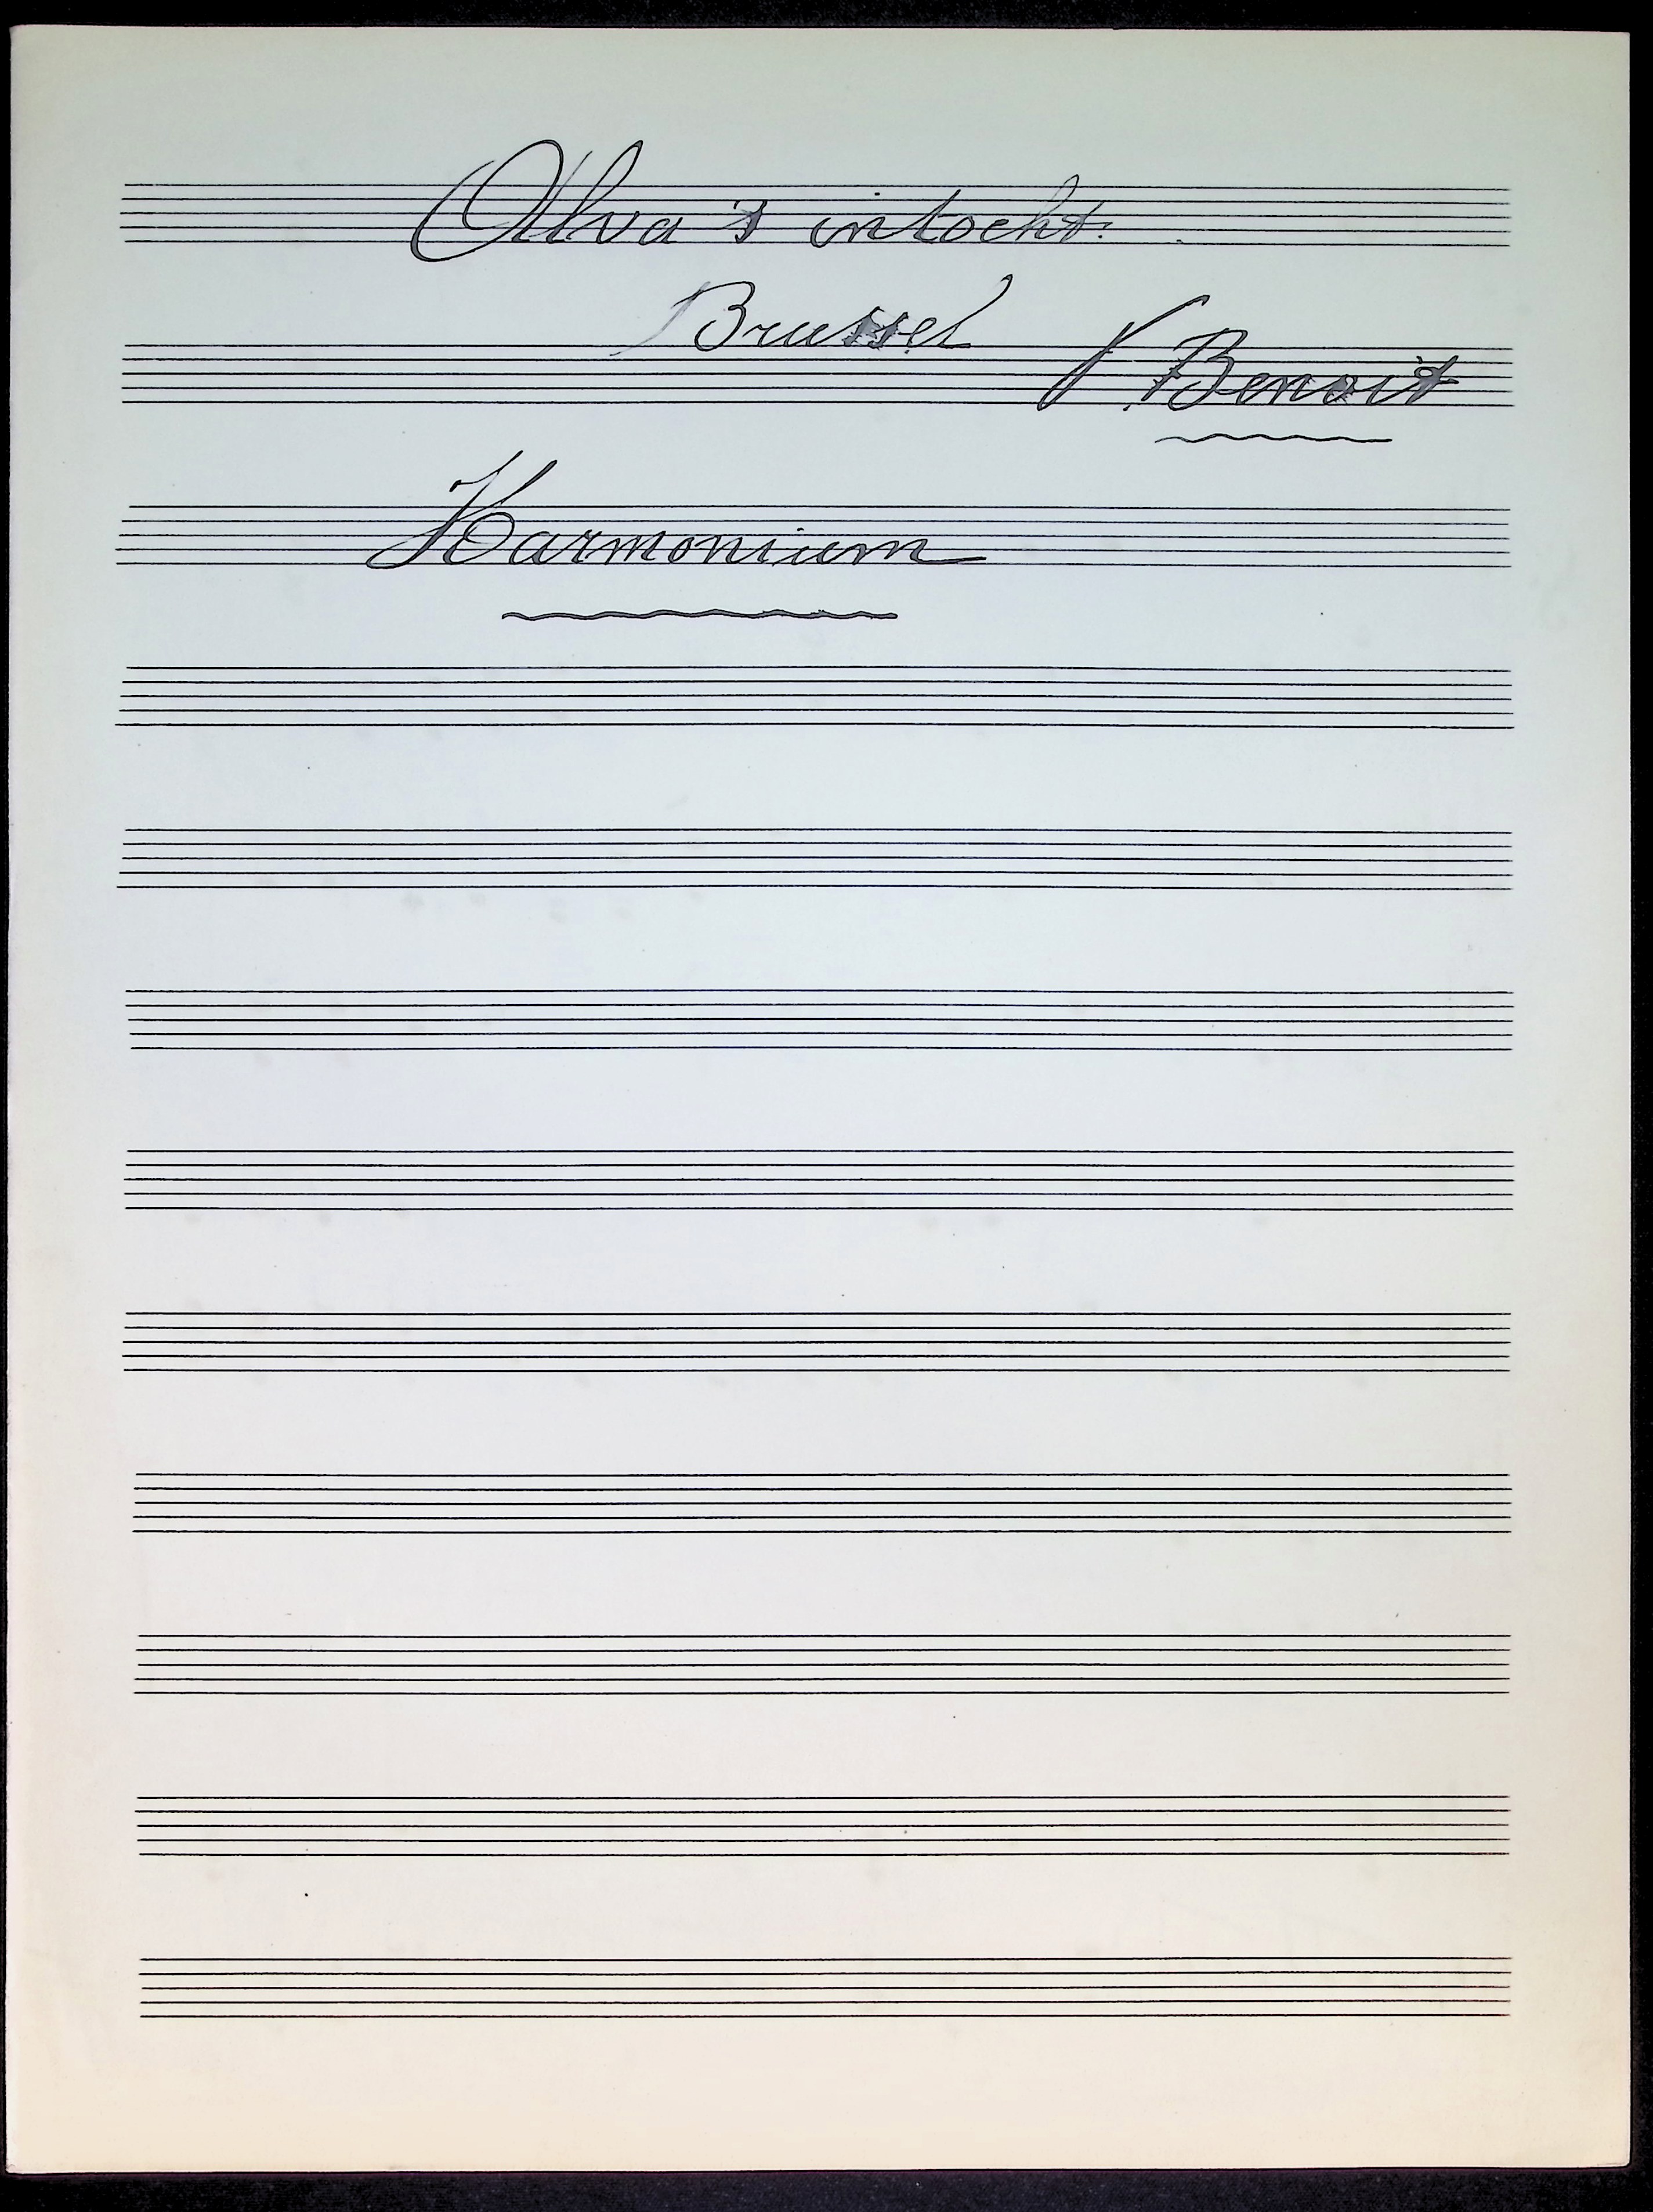 Alva's intocht.
Brussel
P. Benoit
Harmonium